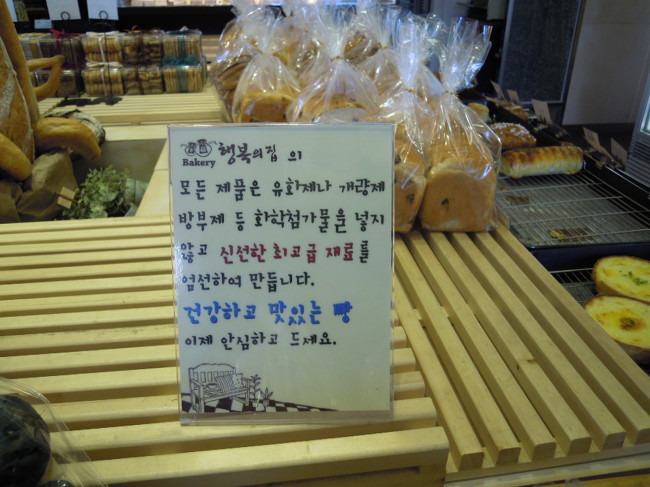 Bakery 행복의집 의
모든 제품은 유화제나 개량제
방부제 등 화학첨가물을 넣지
않고 신선한 최고급 재료를
엄선하여 만듭니다.
건강하고 맛있는 빵
이제 안심하고 드세요.